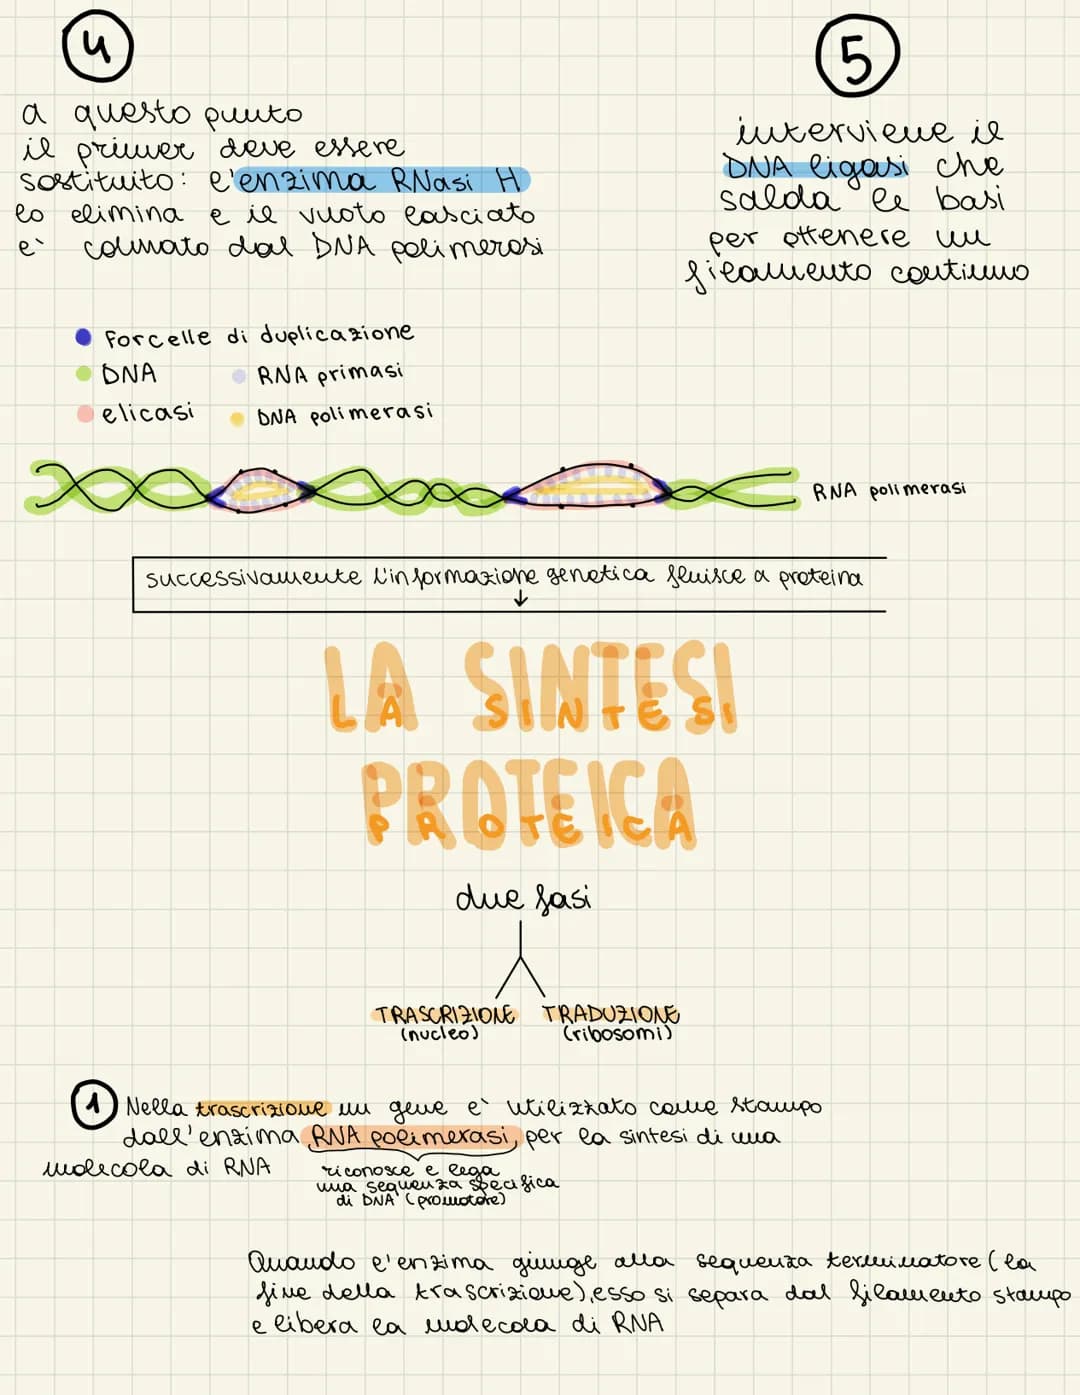 4
a questo punto
il primer deve essere
sostituito: l'enzima RNasi H
lo elimina e il vuoto lasciato
e' colmato dal DNA polimerasi
5
interviene il
DNA ligasi che
salda le basi
per ottenere un
filamento continuo
Forcelle di duplicazione
DNA
RNA primasi
elicasi
DNA polimerasi
RNA polimerasi
successivamente l'informazione genetica fluisce a proteina
↓
LA SINTESI
LA SINTESI
PROTEICA
PROTEICA
due fasi
TRASCRIZIONE TRADUZIONE
(nucleo) (ribosomi)
1 Nella trascrizione un gene e' utilizzato come stampo
dall'enzima RNA polimerasi, per la sintesi di una
molecola di RNA
riconosce e lega
una sequenza specifica
di DNA (promotore)
Quando l'enzima giunge alla sequenza terminatore (la
fine della trascrizione), esso si separa dal filamento stampo
e libera la molecola di RNA